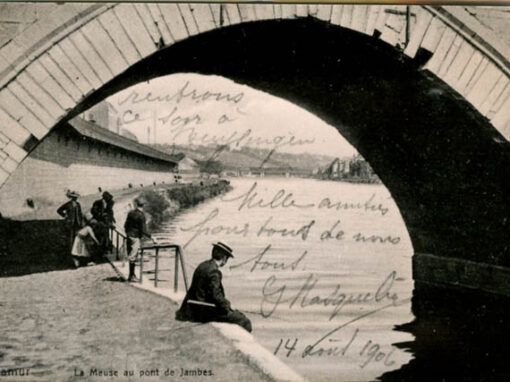 rentrons
ce soir à
Mille amitiés
pour tous de nous
tous
14 août 1906
amur
La Meuse au pont de Jambes.